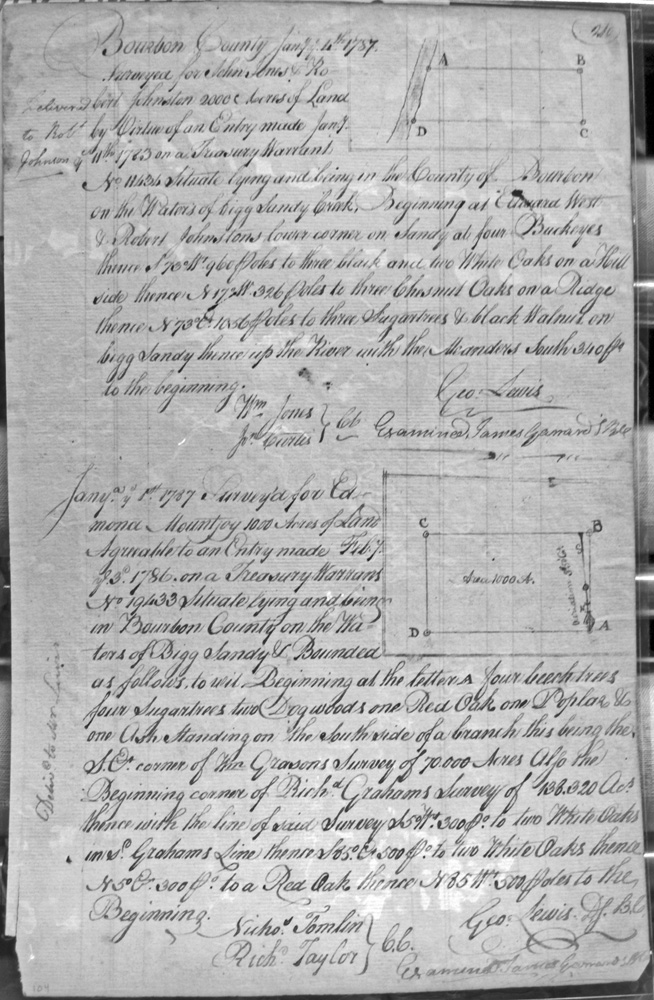 210
Bourbon County Jan.y y.e 4th 1787.
Surveyed for John Jones & Ro
bert Johnston 2000 Acres of Land
by Virtue of an Entry made Jan.y
11th 1783 on a Treasury Warrant
No 11434 Situate lying and being in the County of Bourbon
on the Waters of bigg Sandy Creek, Beginning at Edward West
& Robert Johnstons lower corner on Sandy at four Buckeyes
thence S 73 W 960 Poles to three black and two White Oaks on a Hill
side thence N 17 W. 326 Poles to three Chesnut Oaks on a Ridge
thence N 73 E. 1056 Poles to three Sugartrees & black Walnut on
bigg Sandy thence up the River with the Meanders South 340 Po
to the beginning.
Geo: Lewis
Wm Jones
Jno Curtis
} C.C.
Examined James Garrard S B C
Delivered
to Rob.t
Johnson
A
B
D
C
Jany. y 1st 1787 Survey'd for Ed-
mond Mountjoy 1000 Acres of Land
Agreeable to an Entry made Feb.y
3d. 1786. on a Treasury Warrant
No 19433 Situate lying and being
in Bourbon County on the Wa-
ters of Bigg Sandy & Bounded
as follows, to wit. Beginning at the letter A four beech trees
four Sugartrees two Dogwoods one Red Oak one Poplar &
one Ash Standing on the South side of a branch this being the
S.E. corner of Wm Grasons Survey of 70.000 Acres Also the
Beginning corner of Rich.d Grahams Survey of 138.320 Acs
thence with the line of said Survey S 5 W. 300 Po to two White Oaks
in S.d Grahams Line thence S 85 E 500 Po to two White Oaks thence
N 5 E. 300 Po to a Red Oak thence N 85 W. 500 Poles to the
Beginning.
Geo: Lewis. D.S. B.C
Nichos Tomlin
Richd Taylor
} C.C.
Examined James Garrard S B C
C
B
Area 1000 A.
D
A
104